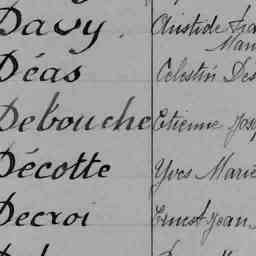 Davy. Aristide
Déas Célestin Des
Debouche Etienne Jose
Décotte Yves Marie
Decroi Ernest Jean